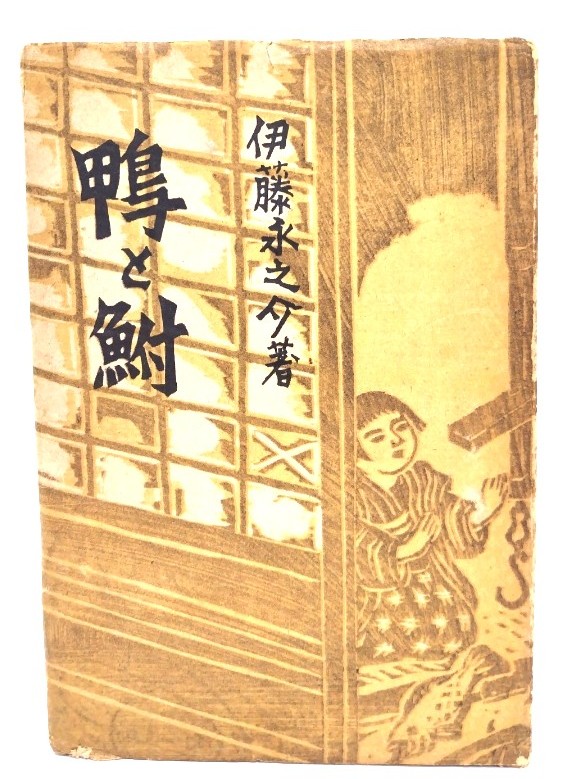 伊藤永之介著
鴨と鮒